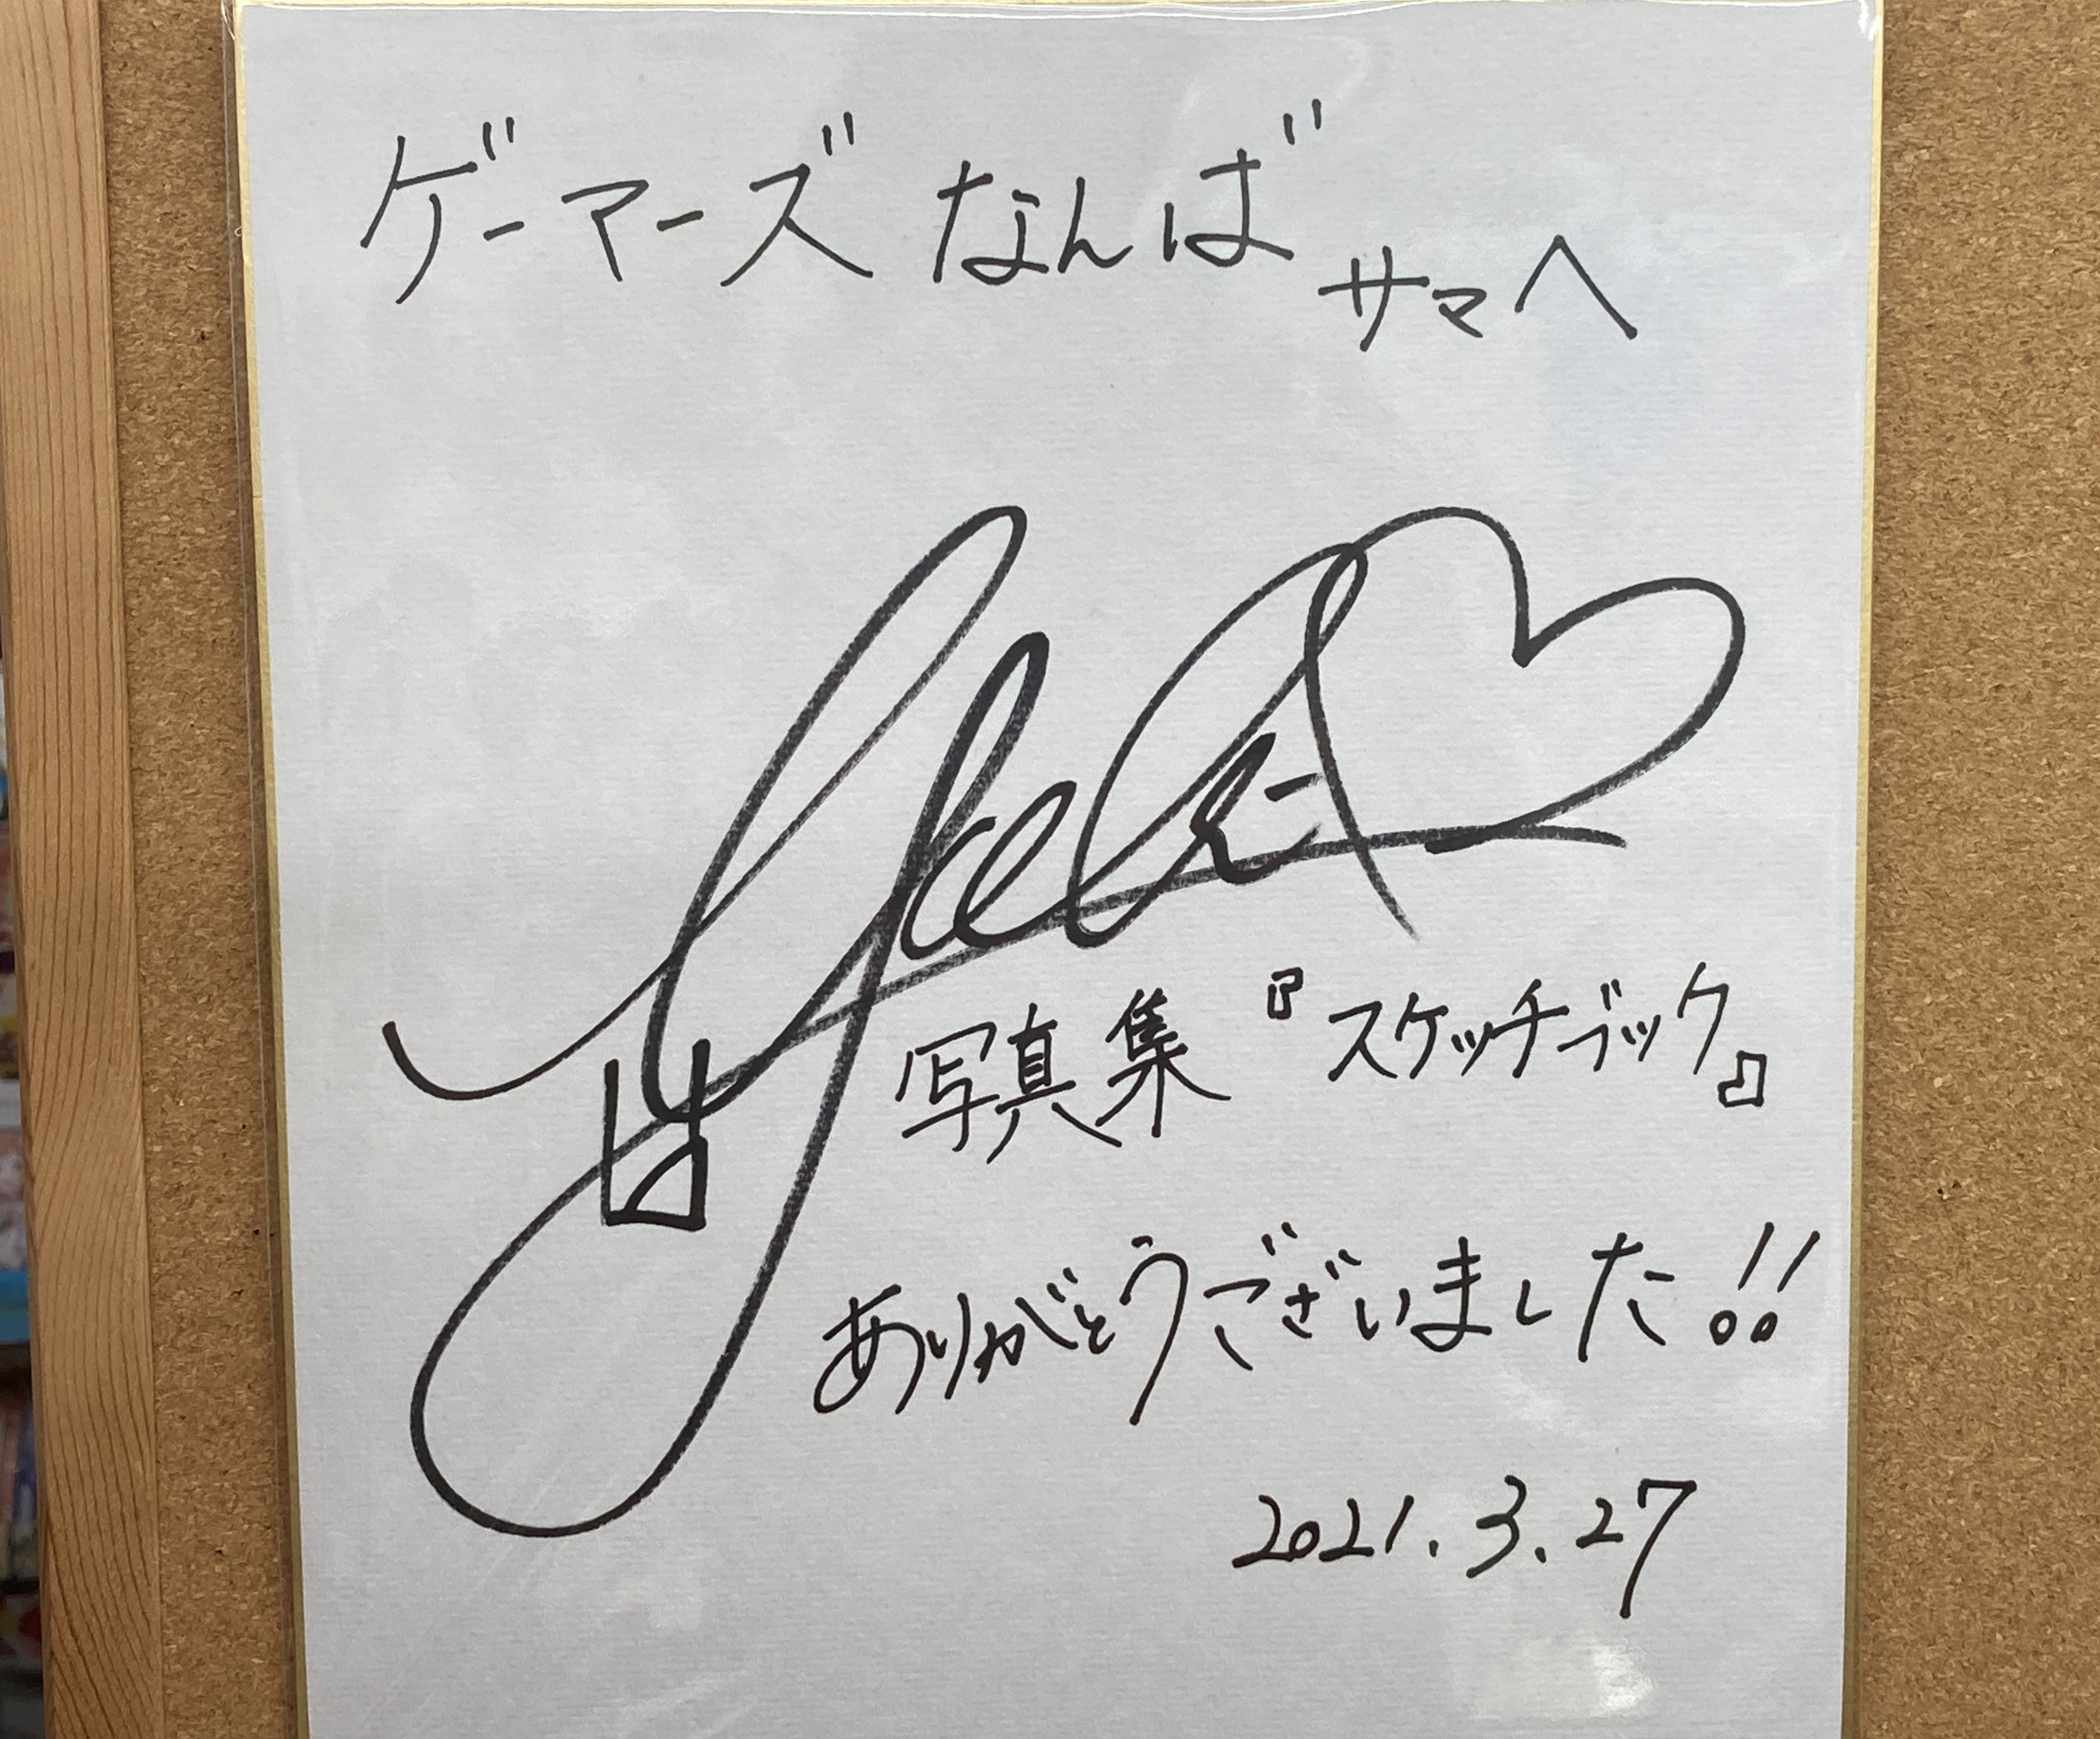 ゲーマーズなんばサマへ
写真集『スケッチブック』
ありがとうございました!!
2021.3.27